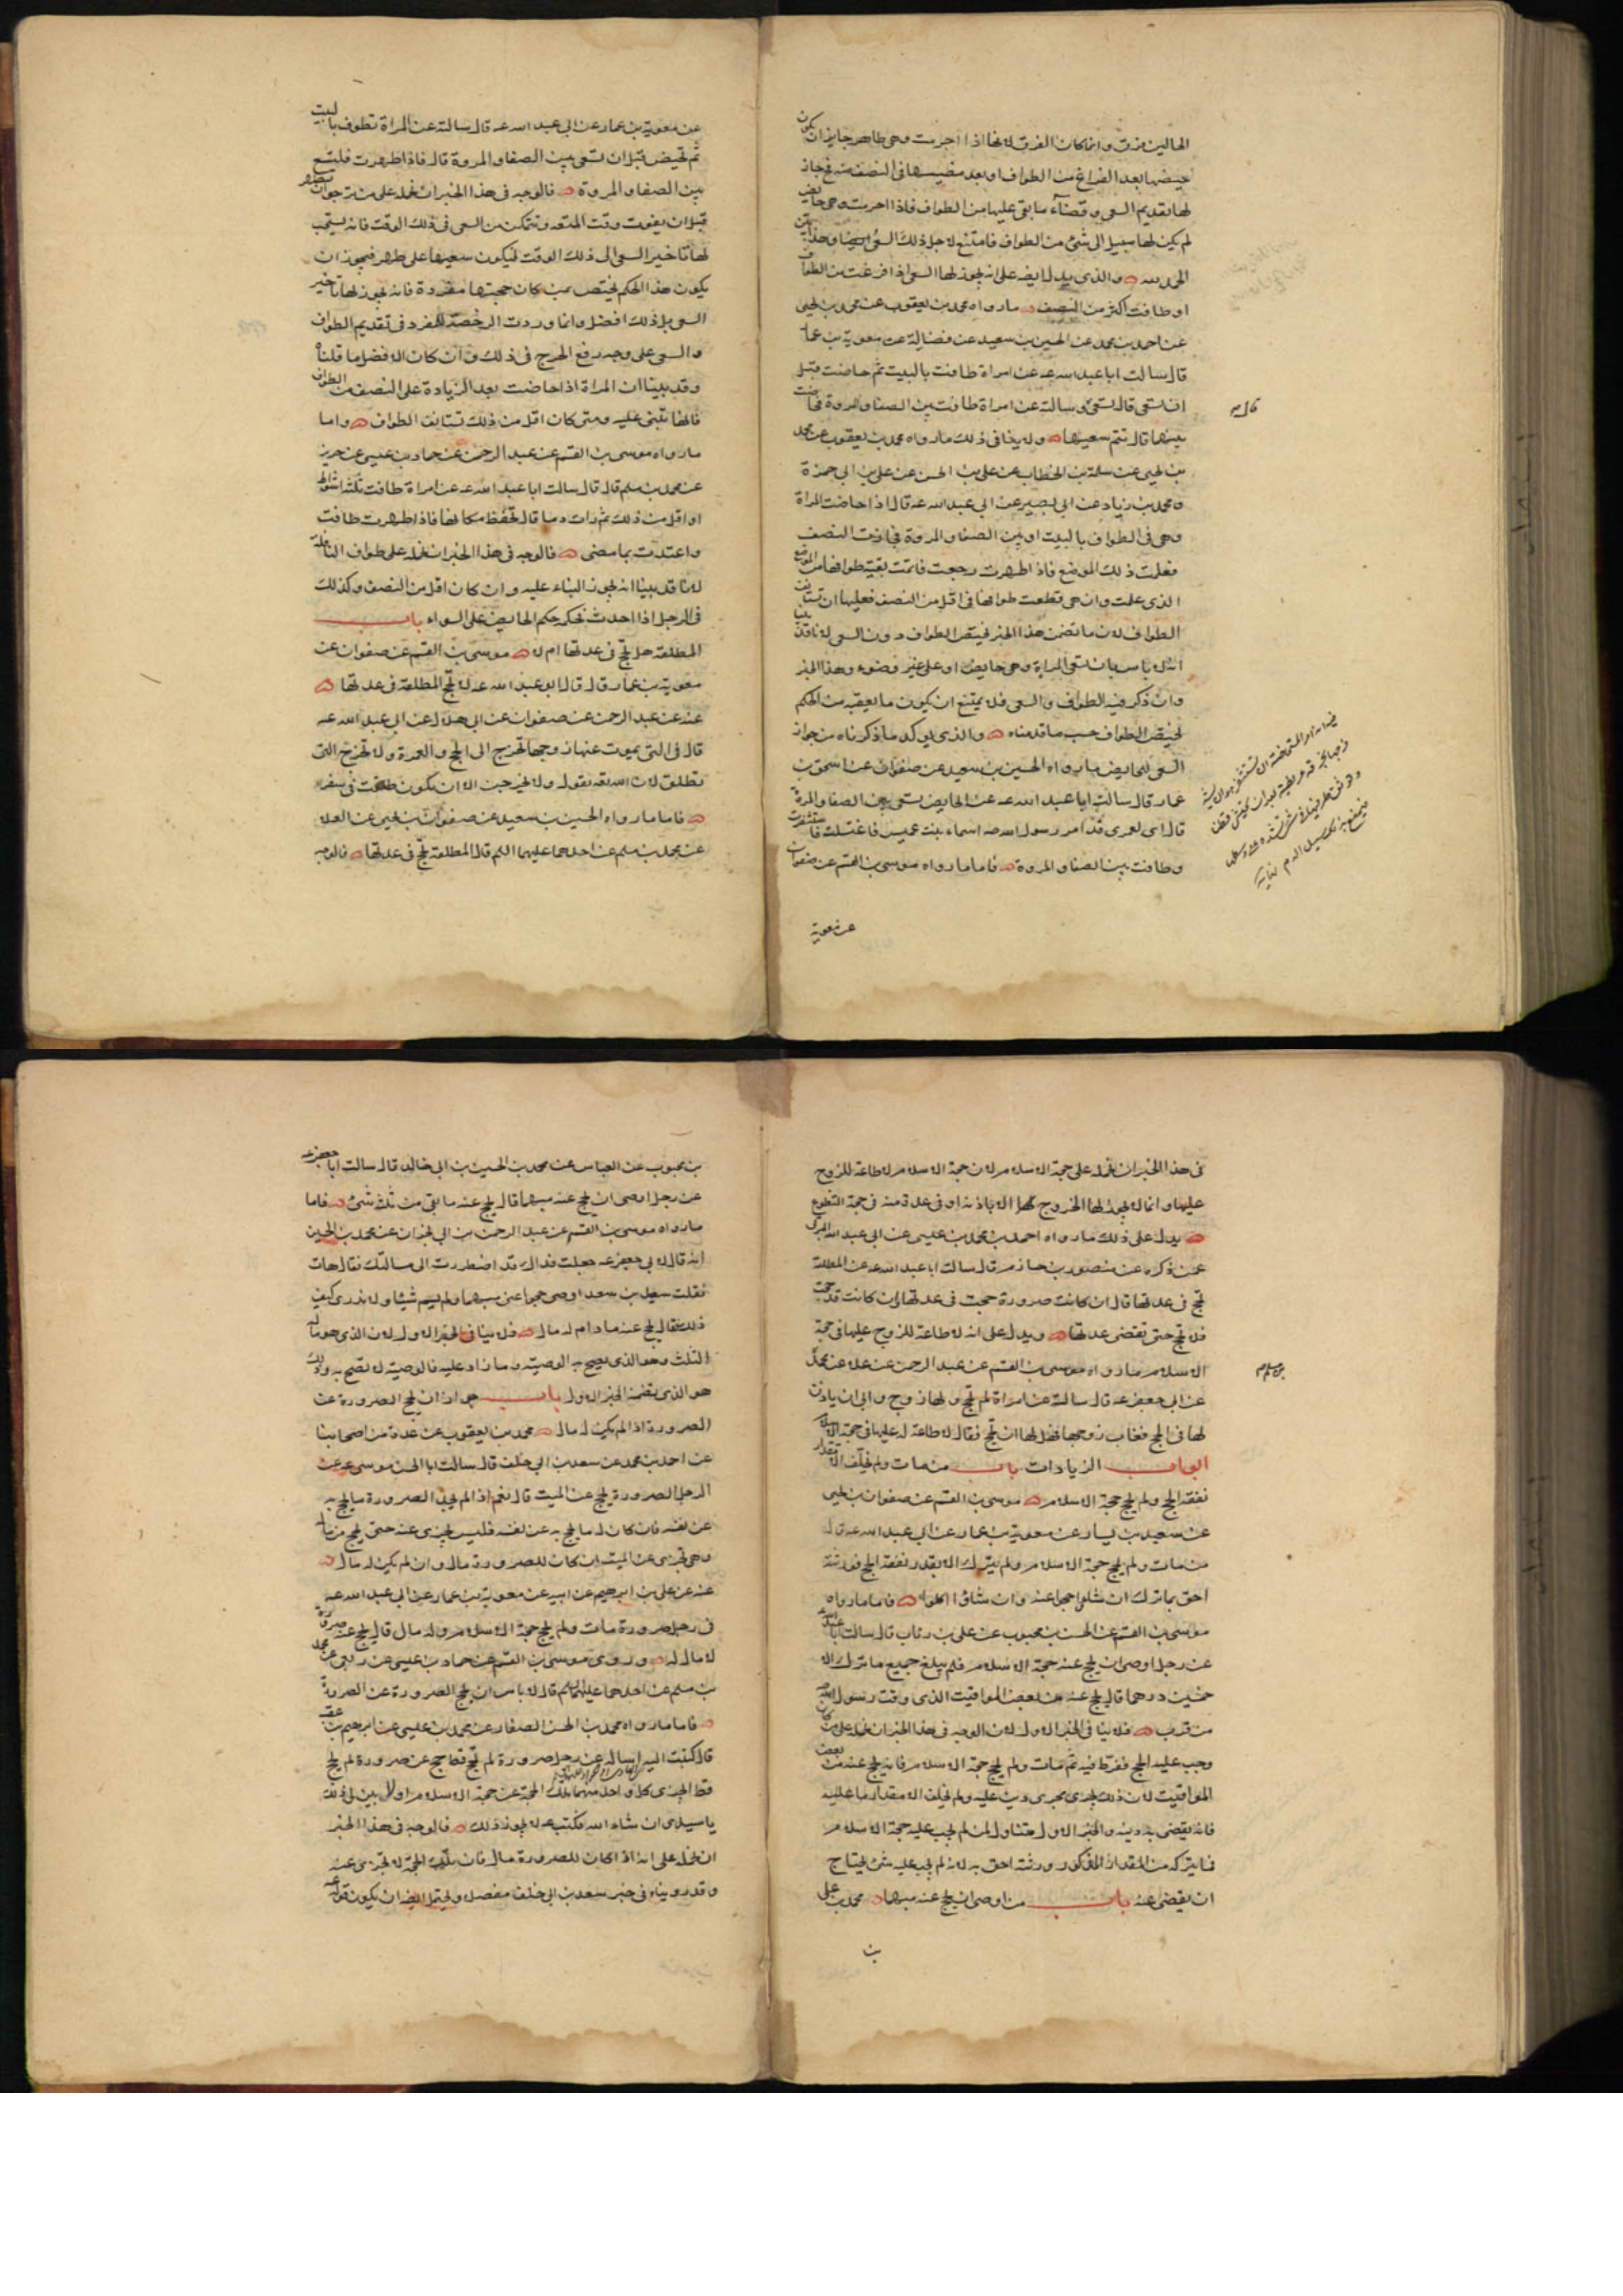 الحالين فرق وانما كان الفرق لانها اذا احرمت وهي طاهر جاز ان يكون
حيضها بعد الفراغ من الطواف او بعد مضيها في النصف منه فح جاز
لها تقديم السعي وقضاء ما بقي عليها من الطواف فاذا احرمت وهي حايض
لم يكن لها سبيل الى شئ من الطواف فامتنع لاجل ذلك السعي ايضا وهذا بين
الحمد لله والذي يدل ايضا على انه يجوز لها السعي اذا فرغت من الطواف
او طافت اكثر من النصف ما رواه محمد بن يعقوب عن محمد بن يحيى
عن احمد بن محمد عن الحسين بن سعيد عن فضالة عن معوية بن عمار
قال سالت ابا عبد الله عه عن امراة طافت بالبيت ثم حاضت قبل
ان تسعى قال تسعى وسالته عن امراة طافت بين الصفا والمروة فحاضت
بينهما قال تتم سعيها ولا ينافي ذلك ما رواه محمد بن يعقوب عن محمد
بن يحيى عن سلمة بن الخطاب عن علي بن الحسن عن علي بن ابي حمزة
ومحمد بن زياد عن ابي بصير عن ابي عبد الله عه قال اذا حاضت المراة
وهي في الطواف بالبيت او بين الصفا والمروة فجازت النصف
فعلمت ذلك الموضع فاذا طهرت رجعت فاتمت بقية طوافها من الموضع
الذي علمت وان هي قطعت طوافها في اقل من النصف فعليها ان تستانف
الطواف لان ما تضمن هذا الخبر يختص الطواف دون السعي لانا قد بينا
انه لا باس بان تسعى المراة وهي حايض او على غير وضوء وهذا الخبر
وان ذكر فيه الطواف والسعي فلا يمتنع ان يكون ما تعقبه من الحكم
يختص الطواف حسب ما قدمناه والذي يوكد ما ذكرناه من جواز
السعي للحايض ما رواه الحسين بن سعيد عن صفوان عن اسحق بن
عمار قال سالت ابا عبد الله عه عن الحايض تسعى بين الصفا والمروة
قال اي لعمري قد امر رسول الله صه اسماء بنت عميس فاغتسلت فاستثفرت
وطافت بين الصفا والمروة فاما ما رواه موسى بن القسم عن صفوان
عن معوية
عن معوية بن عمار عن ابي عبد الله عه قال سالته عن المراة تطوف بالبيت
ثم تحيض قبل ان تسعى بين الصفا والمروة قال فاذا طهرت فلتسع
بين الصفا والمروة فالوجه في هذا الخبر ان نحمله على من ترجو ان تطهر
قبل ان يفوت وقت المتعة وتتمكن من السعي في ذلك الوقت فانه يستحب
لها تاخير السعي الى ذلك الوقت ليكون سعيها على طهر فيجوز ان
يكون هذا الحكم يختص بمن كان حجتها مفردة فانه يجوز لها تاخير
السعي بل ذلك افضل وانما وردت الرخصة للمفرد في تقديم الطواف
والسعي على وجه رفع الحرج في ذلك وان كان الافضل ما قلناه
وقد بينا ان المراة اذا حاضت بعد الزيادة على النصف من الطواف
فانها تبني عليه ومتى كان اقل من ذلك تستانف الطواف واما
ما رواه موسى بن القسم عن عبد الرحمن عن حماد بن عيسى عن حريز
عن محمد بن مسلم قال قال سالت ابا عبد الله عه عن امراة طافت ثلثة اشواط
او اقل من ذلك ثم رات دما قال تحفظ مكانها فاذا طهرت طافت
واعتدت بما مضى فالوجه في هذا الخبر ان نحمله على طواف النافلة
لانا قد بينا انه يجوز البناء عليه وان كان اقل من النصف وكذلك
في الرجل اذا احدث فحكم حكم الحايض على السواء باب
المطلقة هل تحج في عدتها ام لا موسى بن القسم عن صفوان عن
معوية بن عمار قال قال ابو عبد الله عه لا تحج المطلقة في عدتها
عنه عن عبد الرحمن عن صفوان عن ابي هلال عن ابي عبد الله عه
قال في التي يموت عنها زوجها تخرج الى الحج والعمرة ولا تخرج التي
تطلق لان الله تعه يقول ولا يخرجن الا ان يكون طلقت في سفر
فاما ما رواه الحسين بن سعيد عن صفوان بن يحيى عن العلا
عن محمد بن مسلم عن احدهما عليهما السلم قال المطلقة تحج في عدتها فالوجه
في هذا الخبر ان نحمله على حجة الاسلام لان حجة الاسلام لا طاعة للزوج
عليها وانما لا يجوز لها الخروج الا باذنه او في عدة منه في حجة التطوع
يدل على ذلك ما رواه احمد بن محمد بن عيسى عن ابي عبد الله البرقي
عمن ذكره عن منصور بن حازم قال سالت ابا عبد الله عه عن المطلقة
تحج في عدتها قال ان كانت صرورة حجت في عدتها وان كانت قد حجت
فلا تحج حتى تقضي عدتها ويدل على انه لا طاعة للزوج عليها في حجة
الاسلام ما رواه موسى بن القسم عن عبد الرحمن عن علا عن محمد
بن مسلم
عن ابي جعفر عه قال سالته عن امراة لم تحج ولها زوج وابى ان ياذن
لها في الحج فغاب زوجها فهل لها ان تحج فقال لا طاعة له عليها في حجة الاسلام
ابواب الزيادات باب من مات ولم يخلف الا مقدار
نفقة الحج ولم يحج حجة الاسلام موسى بن القسم عن صفوان بن يحيى
عن سعيد بن يسار عن معوية بن عمار عن ابي عبد الله عه قال
من مات ولم يحج حجة الاسلام ولم يترك الا بقدر نفقة الحج فورثته
احق بما ترك ان شاوا حجوا عنه وان شاؤا اكلوا فاما ما رواه
موسى بن القسم عن الحسن بن محبوب عن علي بن رئاب قال سالت ابا عبد الله
عن رجل اوصى ان يحج عنه حجة الاسلام فلم يبلغ جميع ما ترك الا
خمسين درهما قال يحج عنه من بعض المواقيت الذي وقت رسول الله صه
من قرب فلا ينافي الخبر الاول لان الوجه في هذا الخبر ان نحمله على من كان
وجب عليه الحج ففرط فيه ثم مات ولم يحج حجة الاسلام فانه يحج عنه من بعض
المواقيت لان ذلك يجري مجرى دين عليه ولم يخلف الا مقدار ما عليه
فانه يقضى به دينه والخبر الاول متناول لمن لم يجب عليه حجة الاسلام
فما يتركه من المقدار المذكور ورثته احق به لانه لم يجب عليه شئ يحتاج
ان يقضى عنه باب من اوصى ان يحج عنه مبهما محمد بن علي
بن
بن محبوب عن العباس عن محمد بن الحسين بن ابي خالد قال سالت ابا جعفر عه
عن رجل اوصى ان يحج عنه مبهما قال يحج عنه ما بقي من ثلثه شئ فاما
ما رواه موسى بن القسم عن عبد الرحمن بن ابي نجران عن محمد بن الحسين
انه قال لابي جعفر عه جعلت فداك قد اضطررت الى مسالتك فقال هات
فقلت سعد بن سعد اوصى حجوا عني مبهما ولم يسم شيئا ولا ندري كيف
ذلك فقال يحج عنه ما دام له مال فلا ينافي الخبر الاول لان الذي هو ماله
الثلث وهو الذي يصح به الوصية وما زاد عليه فالوصية لا تصح به وذلك
هو الذي تضمنه الخبر الاول باب جواز ان يحج الصرورة عن
الصرورة اذا لم يكن له مال محمد بن يعقوب عن عدة من اصحابنا
عن احمد بن محمد عن سعد بن ابي خلف قال سالت ابا الحسن موسى عه عن
الرجل الصرورة يحج عن الميت قال نعم اذا لم يجد الصرورة ما يحج به
عن نفسه فان كان له ما يحج به عن نفسه فليس يجزي عنه حتى يحج من ماله
وهي تجزي عن الميت ان كان للصرورة مال وان لم يكن له مال
عنه عن علي بن ابرهيم عن ابيه عن معوية بن عمار عن ابي عبد الله عه
في رجل صرورة مات ولم يحج حجة الاسلام وله مال قال يحج عنه صرورة
لا مال له وروى موسى بن القسم عن حماد بن عيسى عن ربعي عن محمد
بن مسلم عن احدهما عليهما السلم قال لا باس ان يحج الصرورة عن الصرورة
فاما ما رواه محمد بن الحسن الصفار عن محمد بن عيسى عن ابرهيم بن عقبة
قال كتبت اليه اساله عن رجل صرورة لم يحج قط حج عن صرورة لم يحج
قط ايجزي كل واحد منهما تلك الحجة عن حجة الاسلام او لا بين لي ذلك
يا سيدي ان شاء الله فكتب عه لا يجوز ذلك فالوجه في هذا الخبر
ان نحمله على انه اذا كان للصرورة مال فان تلك الحجة لا تجزي عنه
وقد روينا في خبر سعد بن ابي خلف مفصلا ويحتمل ايضا ان يكون قوله